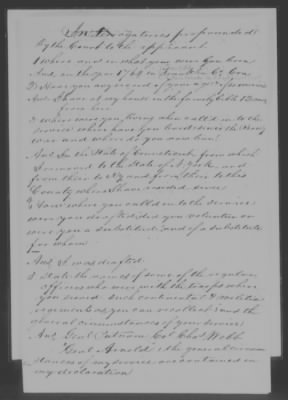 Interrogatories propounded
by the Court to the applicant
1 Where and in what year were you born
Ans. in the year 1764 in
2 Have you any record of your age
Ans I have at my house in the family bible
from here
3 Where were you living when called in to the
service where have you lived since the Rev.
war and where do you now live?
Ans In the State of Connecticut from which
I removed to the State of N. York and
from there to and from there to this
County where I have resided since
4 How were you called in to the Service
were you drafted did you volunteer or
were you a substitute and if a substitute
for whom
Ans I was drafted.
5 State the names of some of the regular
officers who were with the troops where
you served such continental & militia
regiments as you can recollect and the
general circumstances of your service
Ans. Genl Putnam Col Chas. Webb
Genl Arnold & the general circum
stances of my service are contained in
my declaration